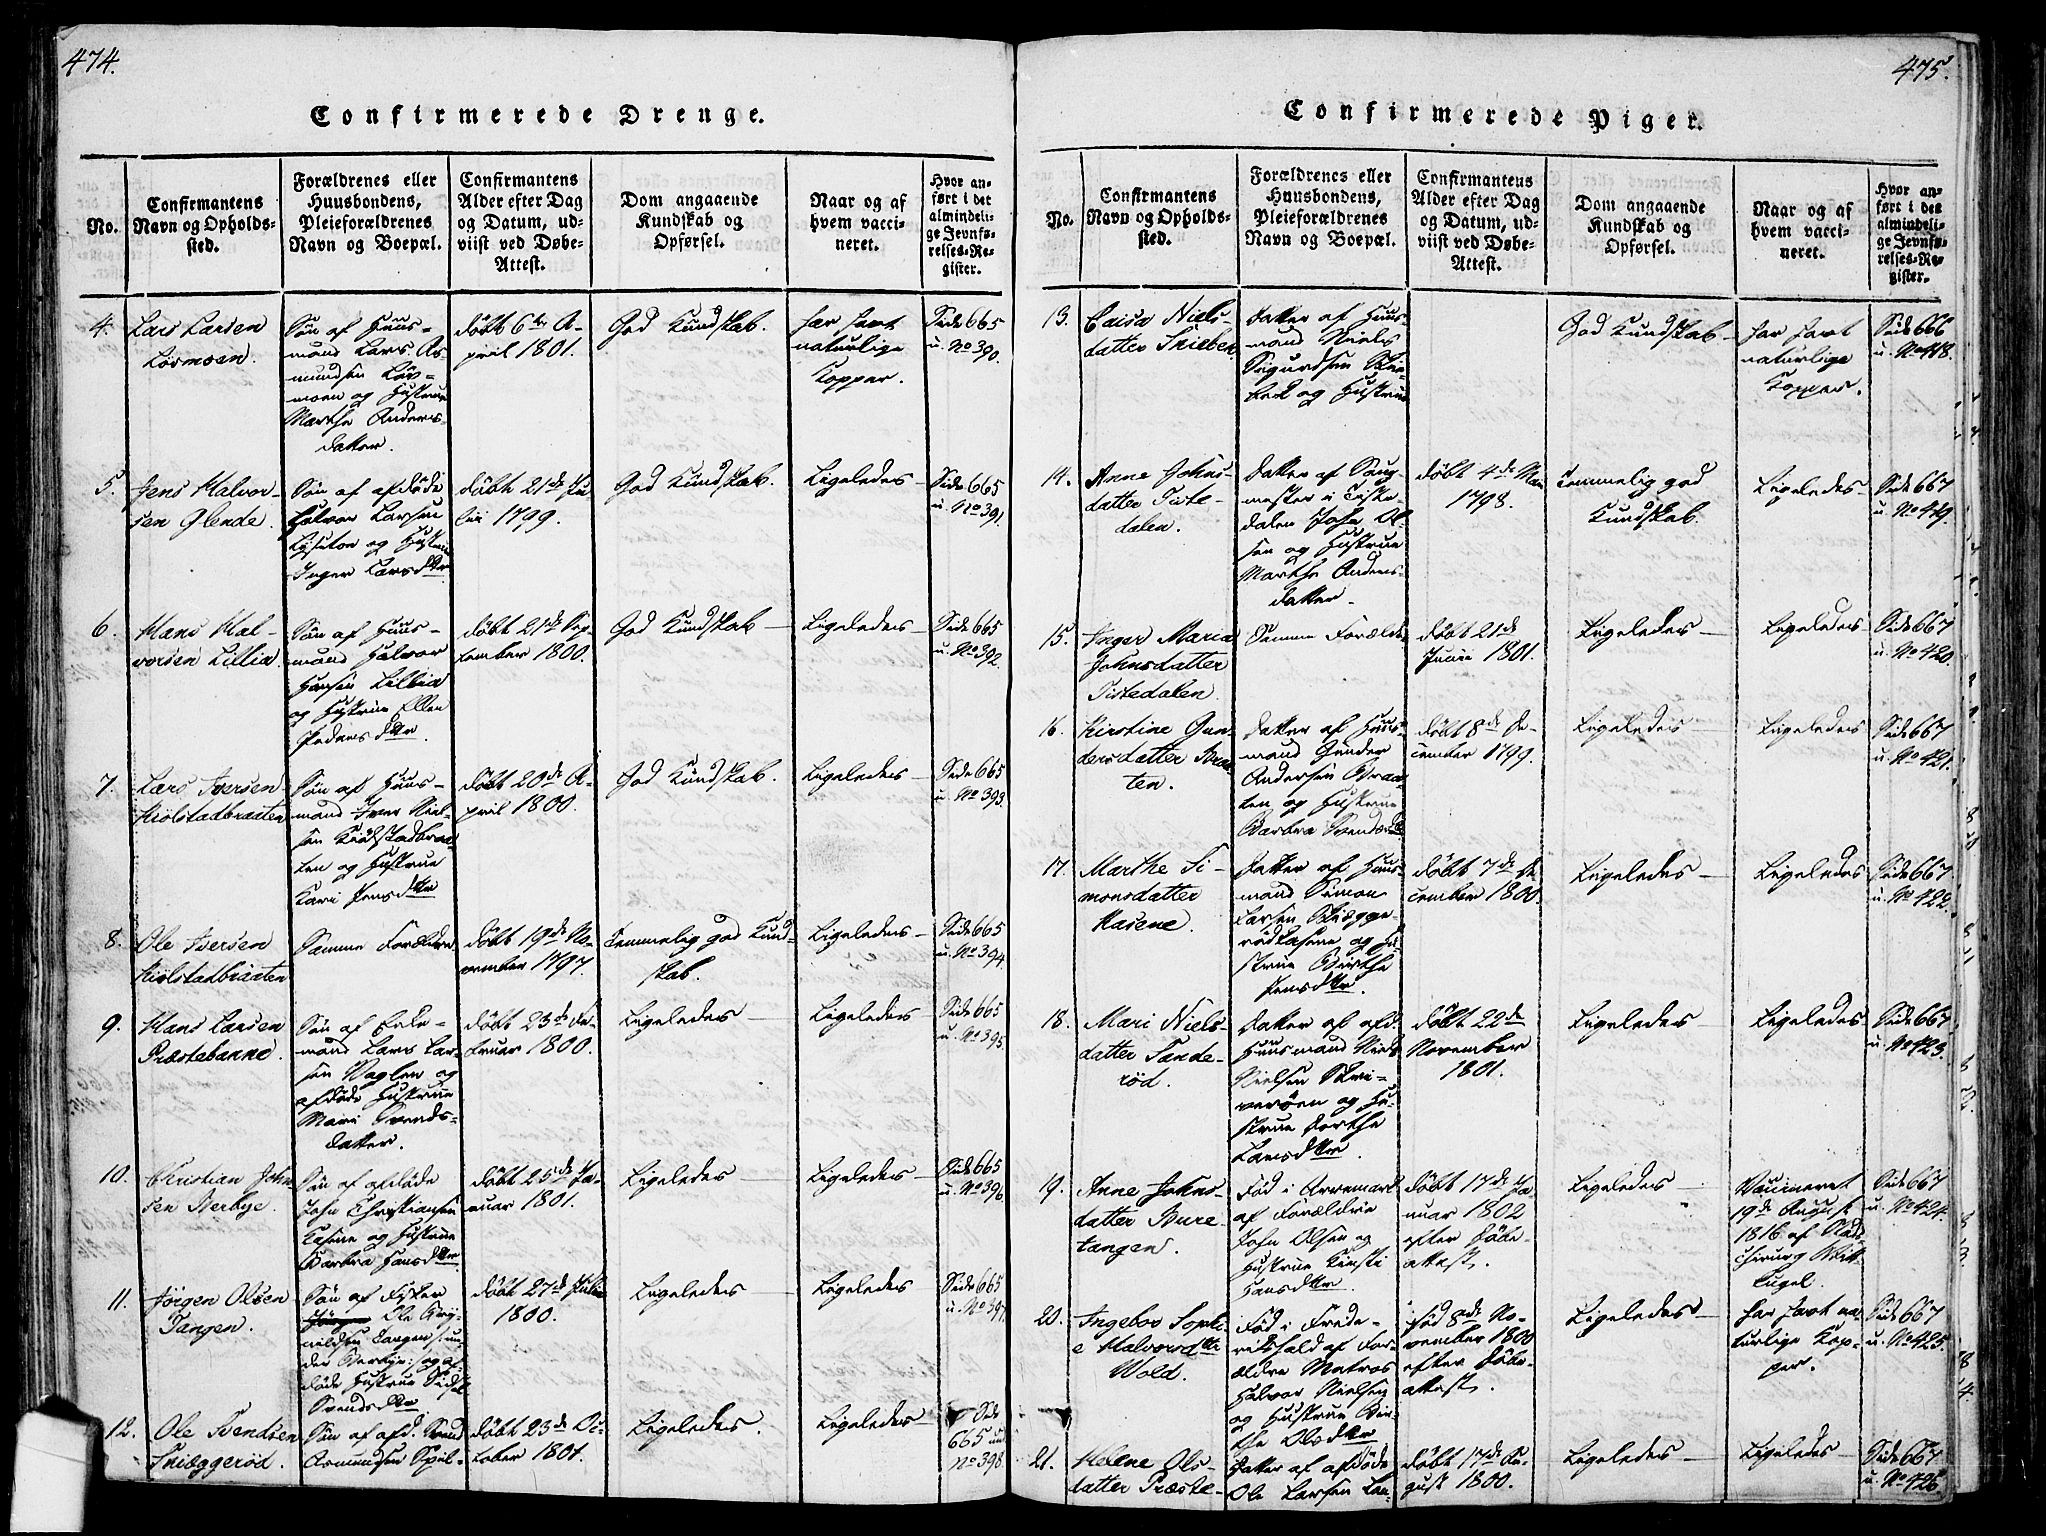 474.
Confirmerede Drenge.
No.
Confirmantens
Navn og Opholds-
sted.
Forældrenes eller
Huusbondens,
Pleieforældrenes
Navn og Boepæl.
Confirmantens
Alder efter Dag
og Datum, ud-
viist ved Døbe-
Attest.
Dom angaaende
Kundskab og
Opførsel.
Naar og af
hvem vacci-
neret.
Hvor an-
ført i det
almindeli-
ge Jevnfø-
relses-Re-
gister.
4.
Lars Larsen
Lörmoen.
Sön af Huus-
mand Lars As-
mundsen Lör-
moen og Hustrue
Marthe Anders-
datter.
döbt 6te A-
pril 1801.
God Kundskab.
har havt
naturlige
Kopper.
Side 665
u. No 390.
5.
Jens Halvor-
sen Glende.
Sön af afdöde
Halvor Larsen
og Hustrue
Inger Larsdtr
döbt 21de Ju-
lii 1799.
God Kundskab.
Ligeledes
Side 665
u. No 391.
6.
Hans Hal-
vorsen Lillia.
Sön af Huus-
mand Halvor
Hansen Lillia
og Hustrue Ellen
Pedersdtr.
döbt 21de Sep-
tember 1800.
God Kundskab
Ligeledes
Side 665
u. No 392.
7.
Lars Iversen
Kiölstadbraaten
Sön af Huus-
mand Iver Niel-
sen Kiölstadbraa-
ten og Hustrue
Kari Jensdtr
döbt 20de A-
pril 1800.
God Kundskab.
Ligeledes
Side 665
u. No 393.
8.
Ole Iversen
Kiölstadbraaten
Samme Forældre
döbt 19de No-
vember 1797.
Temmelig god Kund-
skab.
Ligeledes
Side 665
u. No 394.
9.
Hans Larsen
Præstebanne.
Sön af Enke-
mand Lars Lar-
sen Naglen og
afdöde Hustrue
Mari Svends-
datter.
döbt 23de Fe-
bruar 1800.
Ligeledes
Ligeledes
Side 665
u. No 395.
10.
Christian John-
sen Berbye.
Sön af afdöde
John Christiansen
Kasene og Hustrue
Barbra Hansdtr.
döbt 25de Ja-
nuar 1801.
Ligeledes
Ligeledes
Side 665
u. No 396.
11.
Jörgen Olsen
Tangen.
Sön af Fisker
Ole
Tangen /: un-
der Berbye :/ og af-
döde Hustrue Sidsel
Svendsdtr.
döbt 27de Julii
1800.
Ligeledes
Ligeledes
Side 665
u. No 397.
12.
Ole Svendsen
Skiæggeröd.
Sön af afd. Svend
Asmundsen Skiel-
döbt 23de Oc-
tober 1801.
Ligeledes.
Ligeledes
Side
665 und
No 398
475.
Confirmerede Piger.
No.
Confirmantens
Navn og Opholds-
sted.
Forældrenes eller
Huusbondens,
Pleieforældrenes
Navn og Boepæl.
Confirmantens
Alder efter Dag
og Datum, ud-
viist ved Døbe-
Attest.
Dom angaaende
Kundskab og
Opførsel.
Naar og af
hvem vacci-
neret.
Hvor an-
ført i det
almindeli-
ge Jevnfø-
relses-Re-
gister.
13.
Caisa Niels-
datter
Datter af Huus-
mand Niels
Sigurdsen
og Hustrue
God Kundskab
har havt
naturlige
Kopper.
Side 666
u. No 418.
14.
Anne Johns-
datter Tiste-
dalen.
Datter af Saug-
mester i Tiste-
dalen John Ol-
sen og Hustrue
Marthe Anders-
datter.
döbt 4de Mai
1798.
Temmelig god
Kundskab.
Ligeledes
Side 667
u. No 419.
15.
Inger Maria
Johnsdatter
Tistedalen.
Samme Forældre
döbt 21de
Junii 1801.
Ligeledes
Ligeledes
Side 667
u. No 420.
16.
Kirstine Gun-
dersdatter Braa-
ten.
Datter af Huus-
mand Gunder
Andersen Braa-
ten og Hustrue
Barbra Svendsdtr
döbt 8de De-
cember 1799.
Ligeledes
Ligeledes
Side 667
u. No 421.
17.
Marthe Si-
monsdatter
Kasene.
Datter af Huus-
mand Simon
Larsen Skiægge-
rödkasene og Hu-
strue Birthe
Jensdtr.
döbt 7de De-
cember 1800.
Ligeledes
Ligeledes
Side 667
u. No 422.
18.
Mari Niels-
datter Tande-
röd.
Datter af afd.
Huusmand Niels
Nielsen Skri-
veröen og Hu-
strue Dorthe
Larsdtr.
döbt 22de
November
1801.
Ligeledes
Ligeledes
Side 667
u. No 423.
19.
Anne Johns-
datter Bure-
tangen.
Föd i Aremark
af Forældre
John Olsen og
Hustrue Kirsti
Hansdtr.
döbt 17de Ja-
nuar 1802
efter Döbe-
attest.
Ligeledes
Vaccineret
19de August
1816 af Stads
chirurg Witt
kugel.
Side 667
u. No 424.
20.
Ingebor Sophi-
e Halvorsdtr
Wold.
Föd i Frede-
rikshald af For-
ældre Matros
Halvor Nielsen
og Hustrue Bir-
the Olsdtr
föd 8de No-
vember 1800
efter Döbe-
attest.
Ligeledes
har havt na-
turlige Kop-
per.
Side 667
u. No 425.
21.
Helene Ols-
datter Præste-
Datter af afdöde
Ole Larsen
döbt 17de Au-
gust 1800.
Ligeledes
Ligeledes
Side 667
u. No 426.